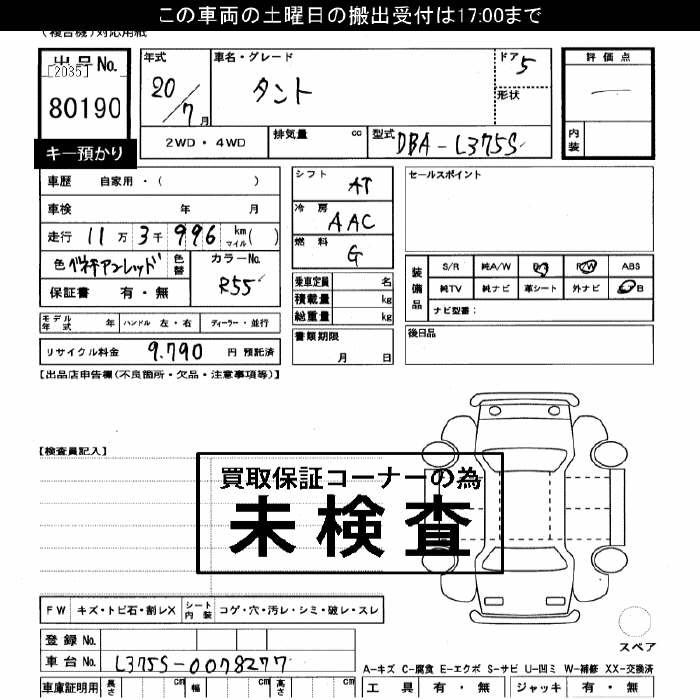 この車両の土曜日の搬出受付は17:00まで
(複合機)対応用紙
出品No. 年式 車名・グレード ドア 5 評価点
[2035] 20/7月 タント 形状 ―
80190
2WD・4WD 排気量 cc 型式 DBA-L375S 内装
キー預かり
車歴 自家用・( ) シフト AT セールスポイント
車検 年 月 冷房 AAC
走行 11万3千996 km マイル( ) 燃料 G
色 色替 カラーNo. R55 装備品 S/R 純A/W P/S P/W ABS
保証書 有・無 乗車定員 名 純TV 純ナビ 革シート 外ナビ B
積載量 kg ナビ型番:
モデル年式 年 ハンドル 左・右 ディーラー・並行 総重量 kg
リサイクル料金 9,790 円 預託済 書類期限 月 日 後日品
【出品店申告欄(不良箇所・欠品・注意事項等)】
【検査員記入】
買取保証コーナーの為
未検査
FW キズ・トビ石・割レX シート内装 コゲ・穴・汚レ・シミ・破レ・スレ
登録No. スペア
車台No. L375S-0078277 A-キズ C-腐食 E-エクボ S-サビ U-凹ミ W-補修 XX-交換済
車庫証明用 長さ cm 幅 cm 高さ cm 工具 有・無 ジャッキ 有・無